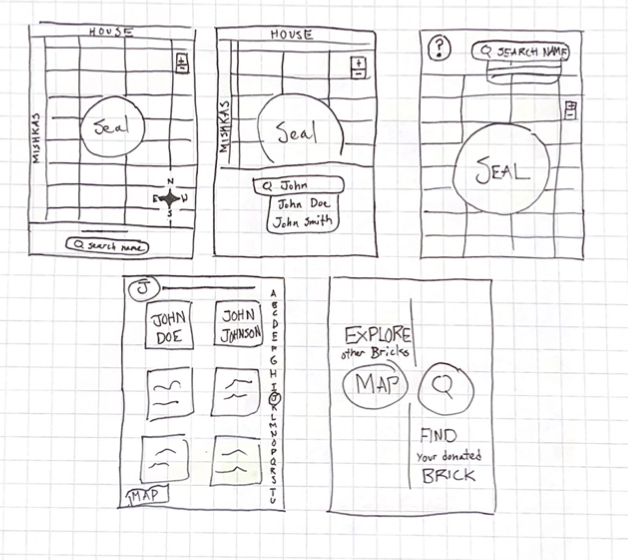 HOUSE
MISHKAS
+
-
Seal
N
E W
S
Q search name
HOUSE
MISHKAS
+
-
Seal
Q John
John Doe
John Smith
?
Q SEARCH NAME
+
-
SEAL
J
JOHN
DOE
JOHN
JOHNSON
A
B
C
D
E
F
G
H
I
J
K
L
M
N
O
P
Q
R
S
T
U
MAP
EXPLORE
other Bricks
MAP
Q
FIND
Your donated
BRICK